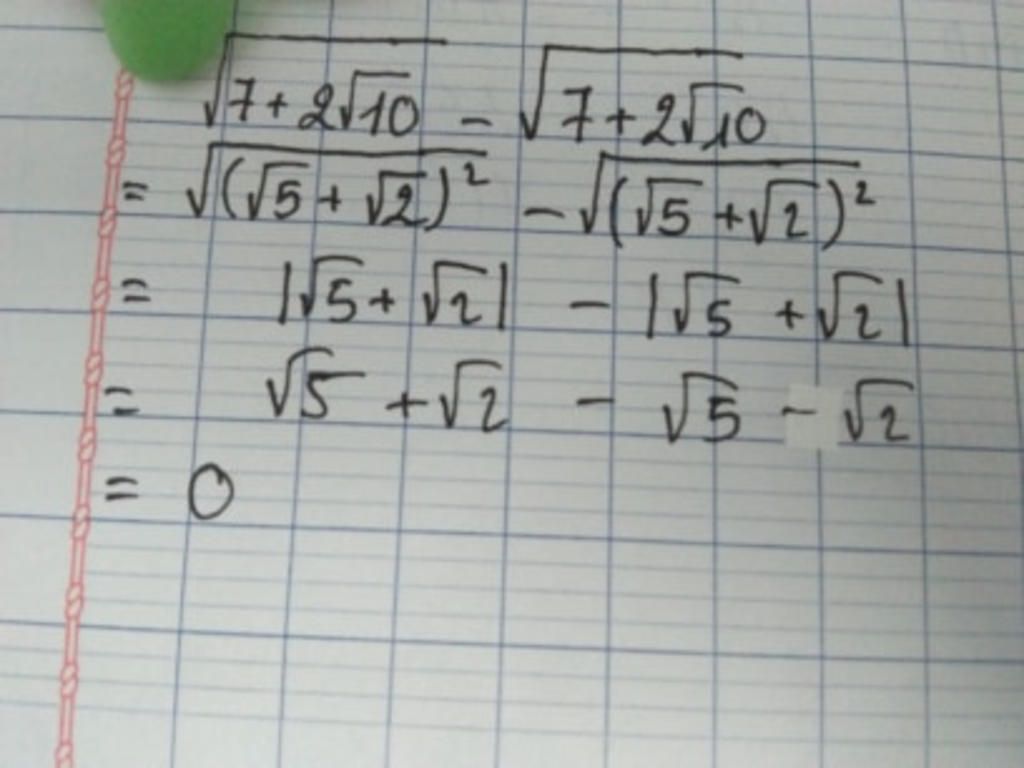 √(7+2√10) - √(7+2√10)
= √((√5+√2)²) - √((√5+√2)²)
= |√5+√2| - |√5+√2|
= √5+√2 - √5-√2
= 0